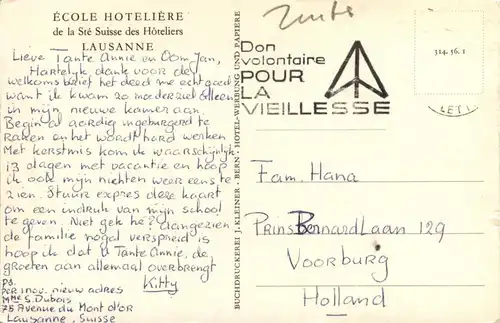 ÉCOLE HOTELIÈRE
de la Sté Suisse des Hôteliers
LAUSANNE
Lieve Tante Annie en Oom Jan,
Hartelijk dank voor de
welkomsbrief het deed me echt goed
want ik kwam zo moederziel alleen
in mijn nieuwe kamer aan.
Begin al aardig ingeburgerd te
raken en het wordt hard werken
Met kerstmis kom ik waarschijnlijk
13 dagen met vacantie en hoop
ik ook mijn nichten weer eens te
zien. Stuur expres deze kaart
om een indruk van mijn school
te geven. Niet gek hè? Aangezien
de familie nogal verspreid is
hoop ik dat U Tante Annie, de
groeten aan allemaal overbrengt
Kitty
PS.
per 1 nov. nieuw adres
Mme S. Dubois
75 Avenue du Mont d'Or
Lausanne, Suisse
BUCHDRUCKEREI J. KLEINER - BERN - HOTEL-WERBUNG UND PAPIERE
Don
volontaire
POUR
LA
VIEILLESSE
314.56.1
Fam. Hana
Prins Bernardlaan 129
Voorburg
Holland